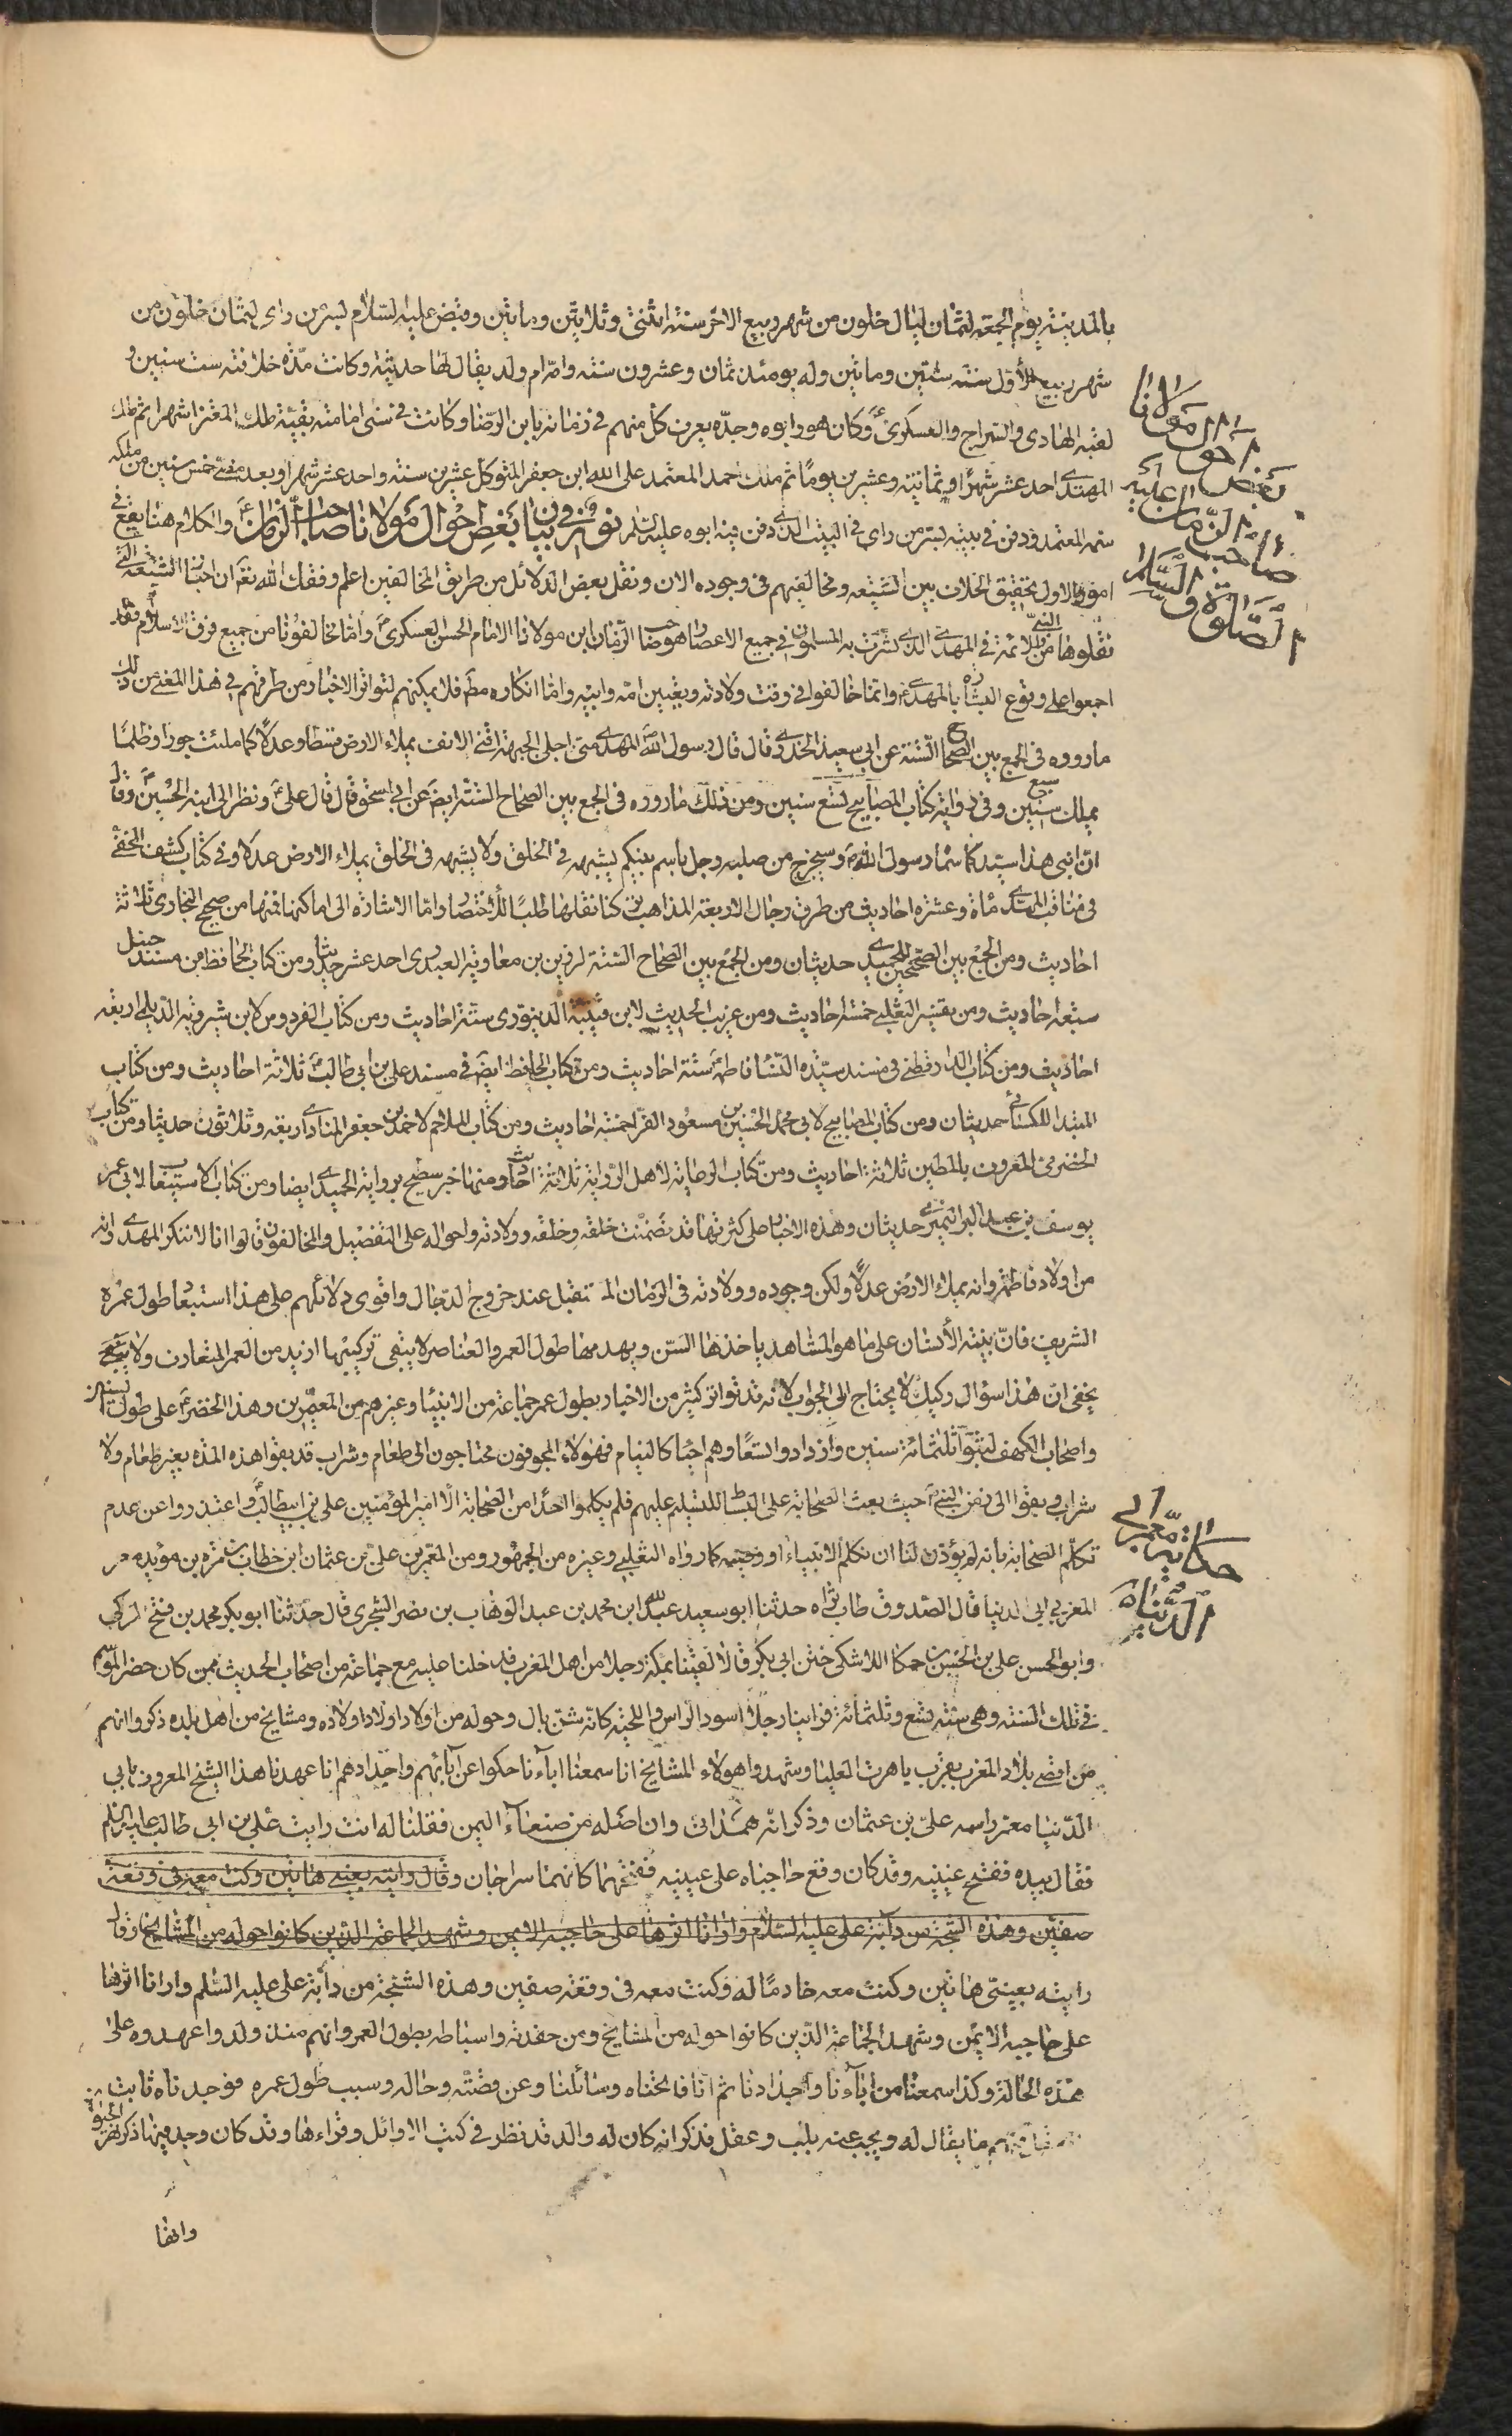 بالمدينة يوم الجمعة لثمان ليال خلون من شهر ربيع الاخر سنة اثنتى وثلاثين ومايتين وقبض عليه السلام بسر من راى لثمان خلون من
شهر ربيع الأول سنة ستين ومايتين وله يومئذ ثمان وعشرون سنة وامه ام ولد يقال لها حديثة وكانت مدة خلافته ست سنين و
لقبه الهادى والسراج والعسكرى ع وكان هو وابوه وجده يعرف كل منهم فى زمانه بابن الرضا وكانت فى سنى امامته بقية ملك المعتز اشهرا ثم ملك
المهتدى احد عشر شهرا وثمانية وعشرين يوما ثم ملك احمد المعتمد على الله ابن جعفر المتوكل عشرين سنة واحد عشر شهرا وبعد مضى خمس سنين من ملكه
سمه المعتمد ودفن فى بيته بسر من راى فى البيت الذى دفن فيه ابوه عليه السلم نور فى بيان بعض احوال مولانا صاحب الزمان ع والكلام هنا يقع فى
امور الاول تحقيق الخلاف بين الشيعه ومخالفيهم فى وجوده الان ونقل بعض الدلائل من طريق المخالفين اعلم وفقك الله تعالى ان اخبار الشيعه التى
نقلوها من النبى والائمة فى المهدى الذى بشرت به المسلمون فى جميع الاعصار هو صاحب الزمان ابن مولانا الامام الحسن العسكرى ع واما مخالفونا من جميع فرق الاسلام فقد
اجمعوا على وقوع البشاره بالمهدى ع وانما خالفوا فى وقت ولادته وتعيين امه وابيه واما انكاره مط فلا يمكنهم لتواتر الاخبار ومن طرقهم فى هذا المعنى من ذلك
ما رووه فى الجمع بين الصحاح الستة عن ابى سعيد الخدرى قال قال رسول الله ص المهدى منى اجلى الجبهة اقنى الانف يملاء الارض قسطا وعدلا كما ملئت جورا وظلما
يملك سبع سنين وفى رواية كتاب المصابيح تسع سنين ومن ذلك ما رووه فى الجمع بين الصحاح الستة ايض عن ابى اسحق قال قال على ع ونظر الى ابنه الحسين ع وقال
ان ابنى هذا سيد كما سماه رسول الله ص وسيخرج من صلبه رجل باسم نبيكم يشبهه فى الخلق ولا يشبهه فى الخلق يملاء الارض عدلا وفى كتاب كشف المخفى
فى مناقب المهدى مأة وعشرة احاديث من طرق رجال الاربعة المذاهب تركنا نقلها طلبا للاختصار واما الاشارة الى اماكنها فمنها من صحيح البخارى ثلاثة
احاديث ومن الجمع بين الصحيحين للحميدى حديثان ومن الجمع بين الصحاح الستة لرزين بن معاوية العبدرى احد عشر حديثا ومن كتاب الحافظ من مسند حنبل
سبعة احاديث ومن تفسير الثعلبى خمسة احاديث ومن غريب الحديث لابن قتيبة الدينورى ستة احاديث ومن كتاب الفردوس لابن شيرويه الديلمى اربعة
احاديث ومن كتاب الدارقطنى فى مسند سيدة النساء فاطمة ع ستة احاديث ومن كتاب الحافظ ايض فى مسند على بن ابى طالب ع ثلاثة احاديث ومن كتاب
المبتدا للكسائى حديثان ومن كتاب المصابيح لابى محمد الحسين بن مسعود الفرا خمسة احاديث ومن كتاب الملاحم لاحمد بن جعفر المنادى اربعة وثلاثون حديثا ومن كتاب
الحضرمى المعروف بالمطين ثلاثة احاديث ومن كتاب الرعاية لاهل الرواية ثلاثة احاديث ومنها خبر سطيح برواية الحميدى ايضا ومن كتاب الاستيعاب لابى عمر
يوسف بن عبد البر النميرى حديثان وهذه الاخبار على كثرتها قد تضمنت خلقه وخلقه وولادته واحواله على التفضيل والمخالفون قالوا انا لا ننكر المهدى وانه
من اولاد فاطمة وانه يملاء الارض عدلا ولكن وجوده وولادته فى الزمان المستقبل عند خروج الدجال واقوى دلائلهم على هذا استبعاد طول عمره
الشريف فان بنية الأنسان على ما هو المشاهد ياخذها السن ويهدمها طول العمر والعناصر لا يبقى تركيبها ازيد من العمر المتعارف ولا
يخفى ان هذا سؤال ركيك لا يحتاج الى الجواب لانه قد تواتر كثير من الاخبار بطول عمر جماعة من الانبيا وغيرهم من المعمرين وهذا الخضر ع على طول السنين
واصحاب الكهف لبثوا ثلثمائة سنين وازدادوا تسعا وهم احيا كالنيام فهؤلاء المجوفون محتاجون الى طعام وشراب قد بقوا هذه المدة بغير طعام ولا
شراب وبقوا الى زمن النبى ص حيث بعث الصحابة على البساط للتسليم عليهم فلم يكلموا احدا من الصحابة الا امير المؤمنين على بن ابيطالب ع واعتذروا عن عدم
تكلم الصحابة بانه لم يؤذن لنا ان نكلم الا نبياء او وصيه كما رواه الثعلبى وغيره من الجمهور ومن المعمرين على بن عثمان ابن خطاب بن مره بن مؤيد
المغربى ابى الدنيا قال الصدوق طاب ثراه حدثنا ابو سعيد عبد الله ابن محمد بن عبد الوهاب بن نصر الشجرى قال حدثنا ابو بكر محمد بن فتح الركى
وابو الحسن على بن الحسن بن حمكا اللاشكى ختن ابى بكر قالا لقينا بمكة رجلا من اهل المغرب فدخلنا عليه مع جماعة من اصحاب الحديث ممن كان حضر الموسم
فى تلك السنة وهى سنة تسع وثلثمائة فراينا رجلا اسود الراس واللحية كانه شن بال وحوله من اولاد اولاد اولاده ومشايخ من اهل بلده ذكروا انهم
من اقصى بلاد المغرب بقرب باهرت العليا وشهدوا هولاء المشايخ انا سمعنا اباءنا حكوا عن ابائهم واجدادهم انا عهدنا هذا الشيخ المعروف بابى
الدنيا معمر واسمه على بن عثمان وذكر انه همدانى وان اصله من صنعاء اليمن فقلنا له انت رايت على بن ابى طالب عليه السلم
فقال بيده ففتح عينيه وقد كان وقع حاجباه على عينيه ففتحهما كانهما سراجان وقال رايته بعينى هاتين وكنت معه فى وقعة
صفين وهذه الشجة من دابة على عليه السلام وارانا اثرها على حاجبه الايمن وشهد الجماعة الذين كانوا حوله من المشايخ وقال
رايته بعينى هاتين وكنت معه خادما له وكنت معه فى وقعة صفين وهذه الشجة من دابة على عليه السلم وارانا اثرها
على حاجبه الايمن وشهد الجماعة الذين كانوا حوله من المشايخ ومن حفدته واسباطه بطول العمر وانهم منذ ولدوا عهدوه على
هذه الحالة وكذا سمعنا من ابآءنا واجدادنا ثم انا فاتحناه وسائلنا وعن قصته وحاله وسبب طول عمره فوجدناه ثابت
ما يقال له ويجيب عنه بلب وعقل فذكر انه كان له والد قد نظر فى كتب الاوائل وقراءها وقد كان وجد فيها ذكر نهر الحيوة
وانها
بعض احوال مولانا
صاحب الزمان عليه
الصلوة و السلام
حكاية معمر ابى
الدنيا